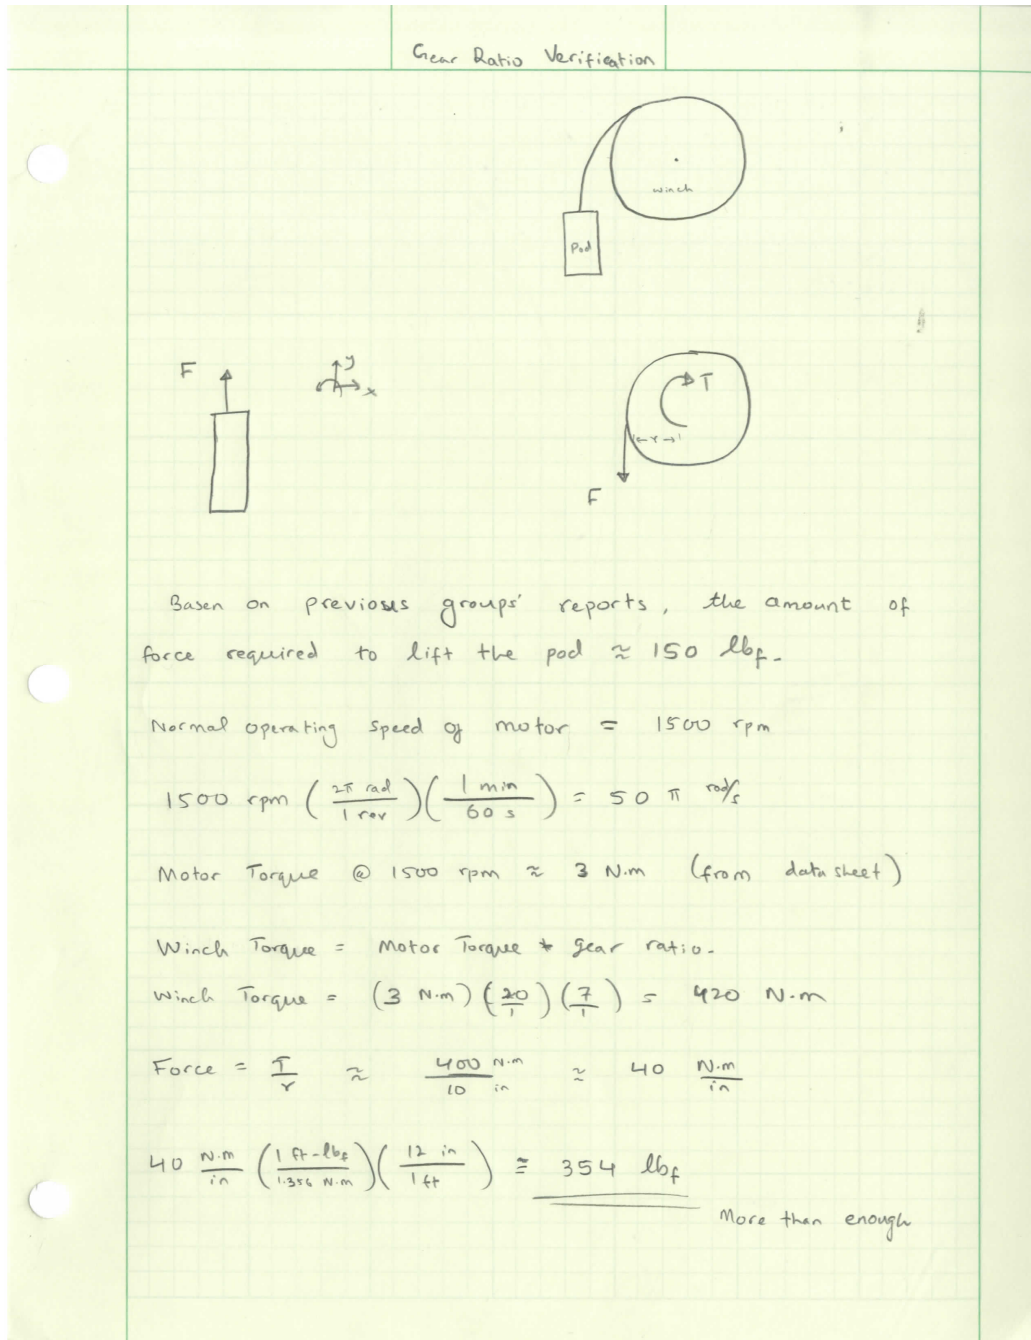 Gear Ratio Verification
winch
Pod
F
y
x
T
r
F
Basen on previous groups' reports, the amount of
force required to lift the pod ≈ 150 lbf.
Normal operating speed of motor = 1500 rpm
1500 rpm (2π rad / 1 rev)(1 min / 60 s) = 50 π rad/s
Motor Torque @ 1500 rpm ≈ 3 N.m (from datasheet)
Winch Torque = Motor Torque * gear ratio.
Winch Torque = (3 N.m)(20/1)(7/1) = 420 N.m
Force = T/r ≈ 400 N.m / 10 in ≈ 40 N.m/in
40 N.m/in (1 ft-lbf / 1.356 N.m)(12 in / 1 ft) ≅ 354 lbf
More than enough